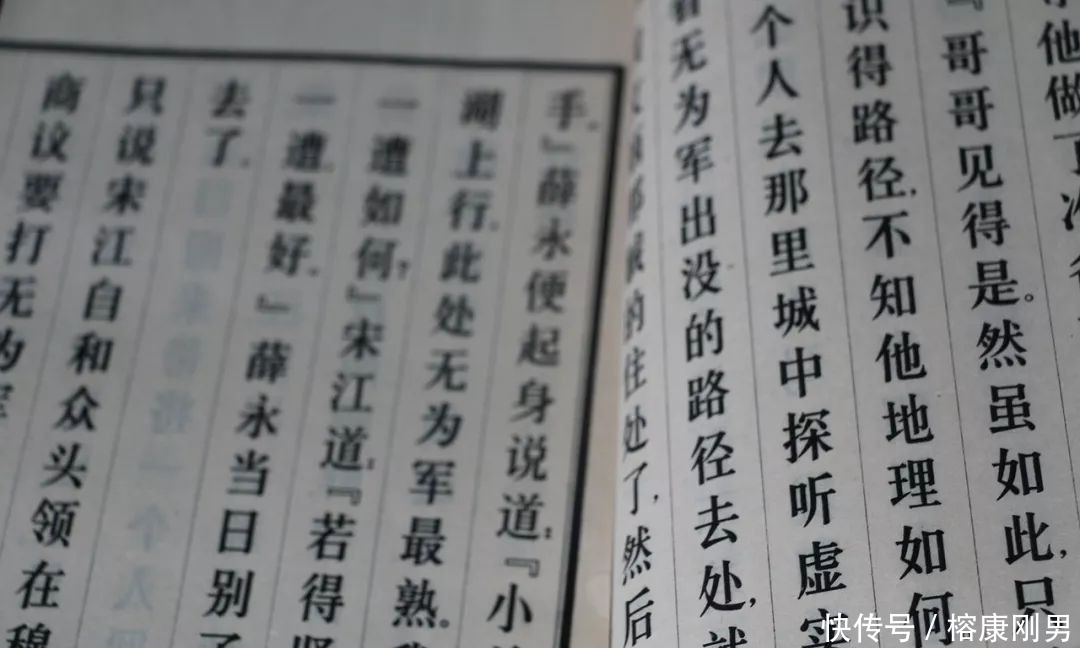 他做了
『哥哥见得是。然虽如此，只
识得路径，不知他地理如何
个人去那里城中探听虚实
看无为军出没的路径去处，就
的住处了，然后
手。』薛永便起身说道：『小
湖上行，此处无为军最熟。我
一遭如何？』宋江道：『若得贤
一遭，最好。』薛永当日别了
去了。
只说宋江自和众头领在穆
商议要打无为军
快传号 / 榕康刚男